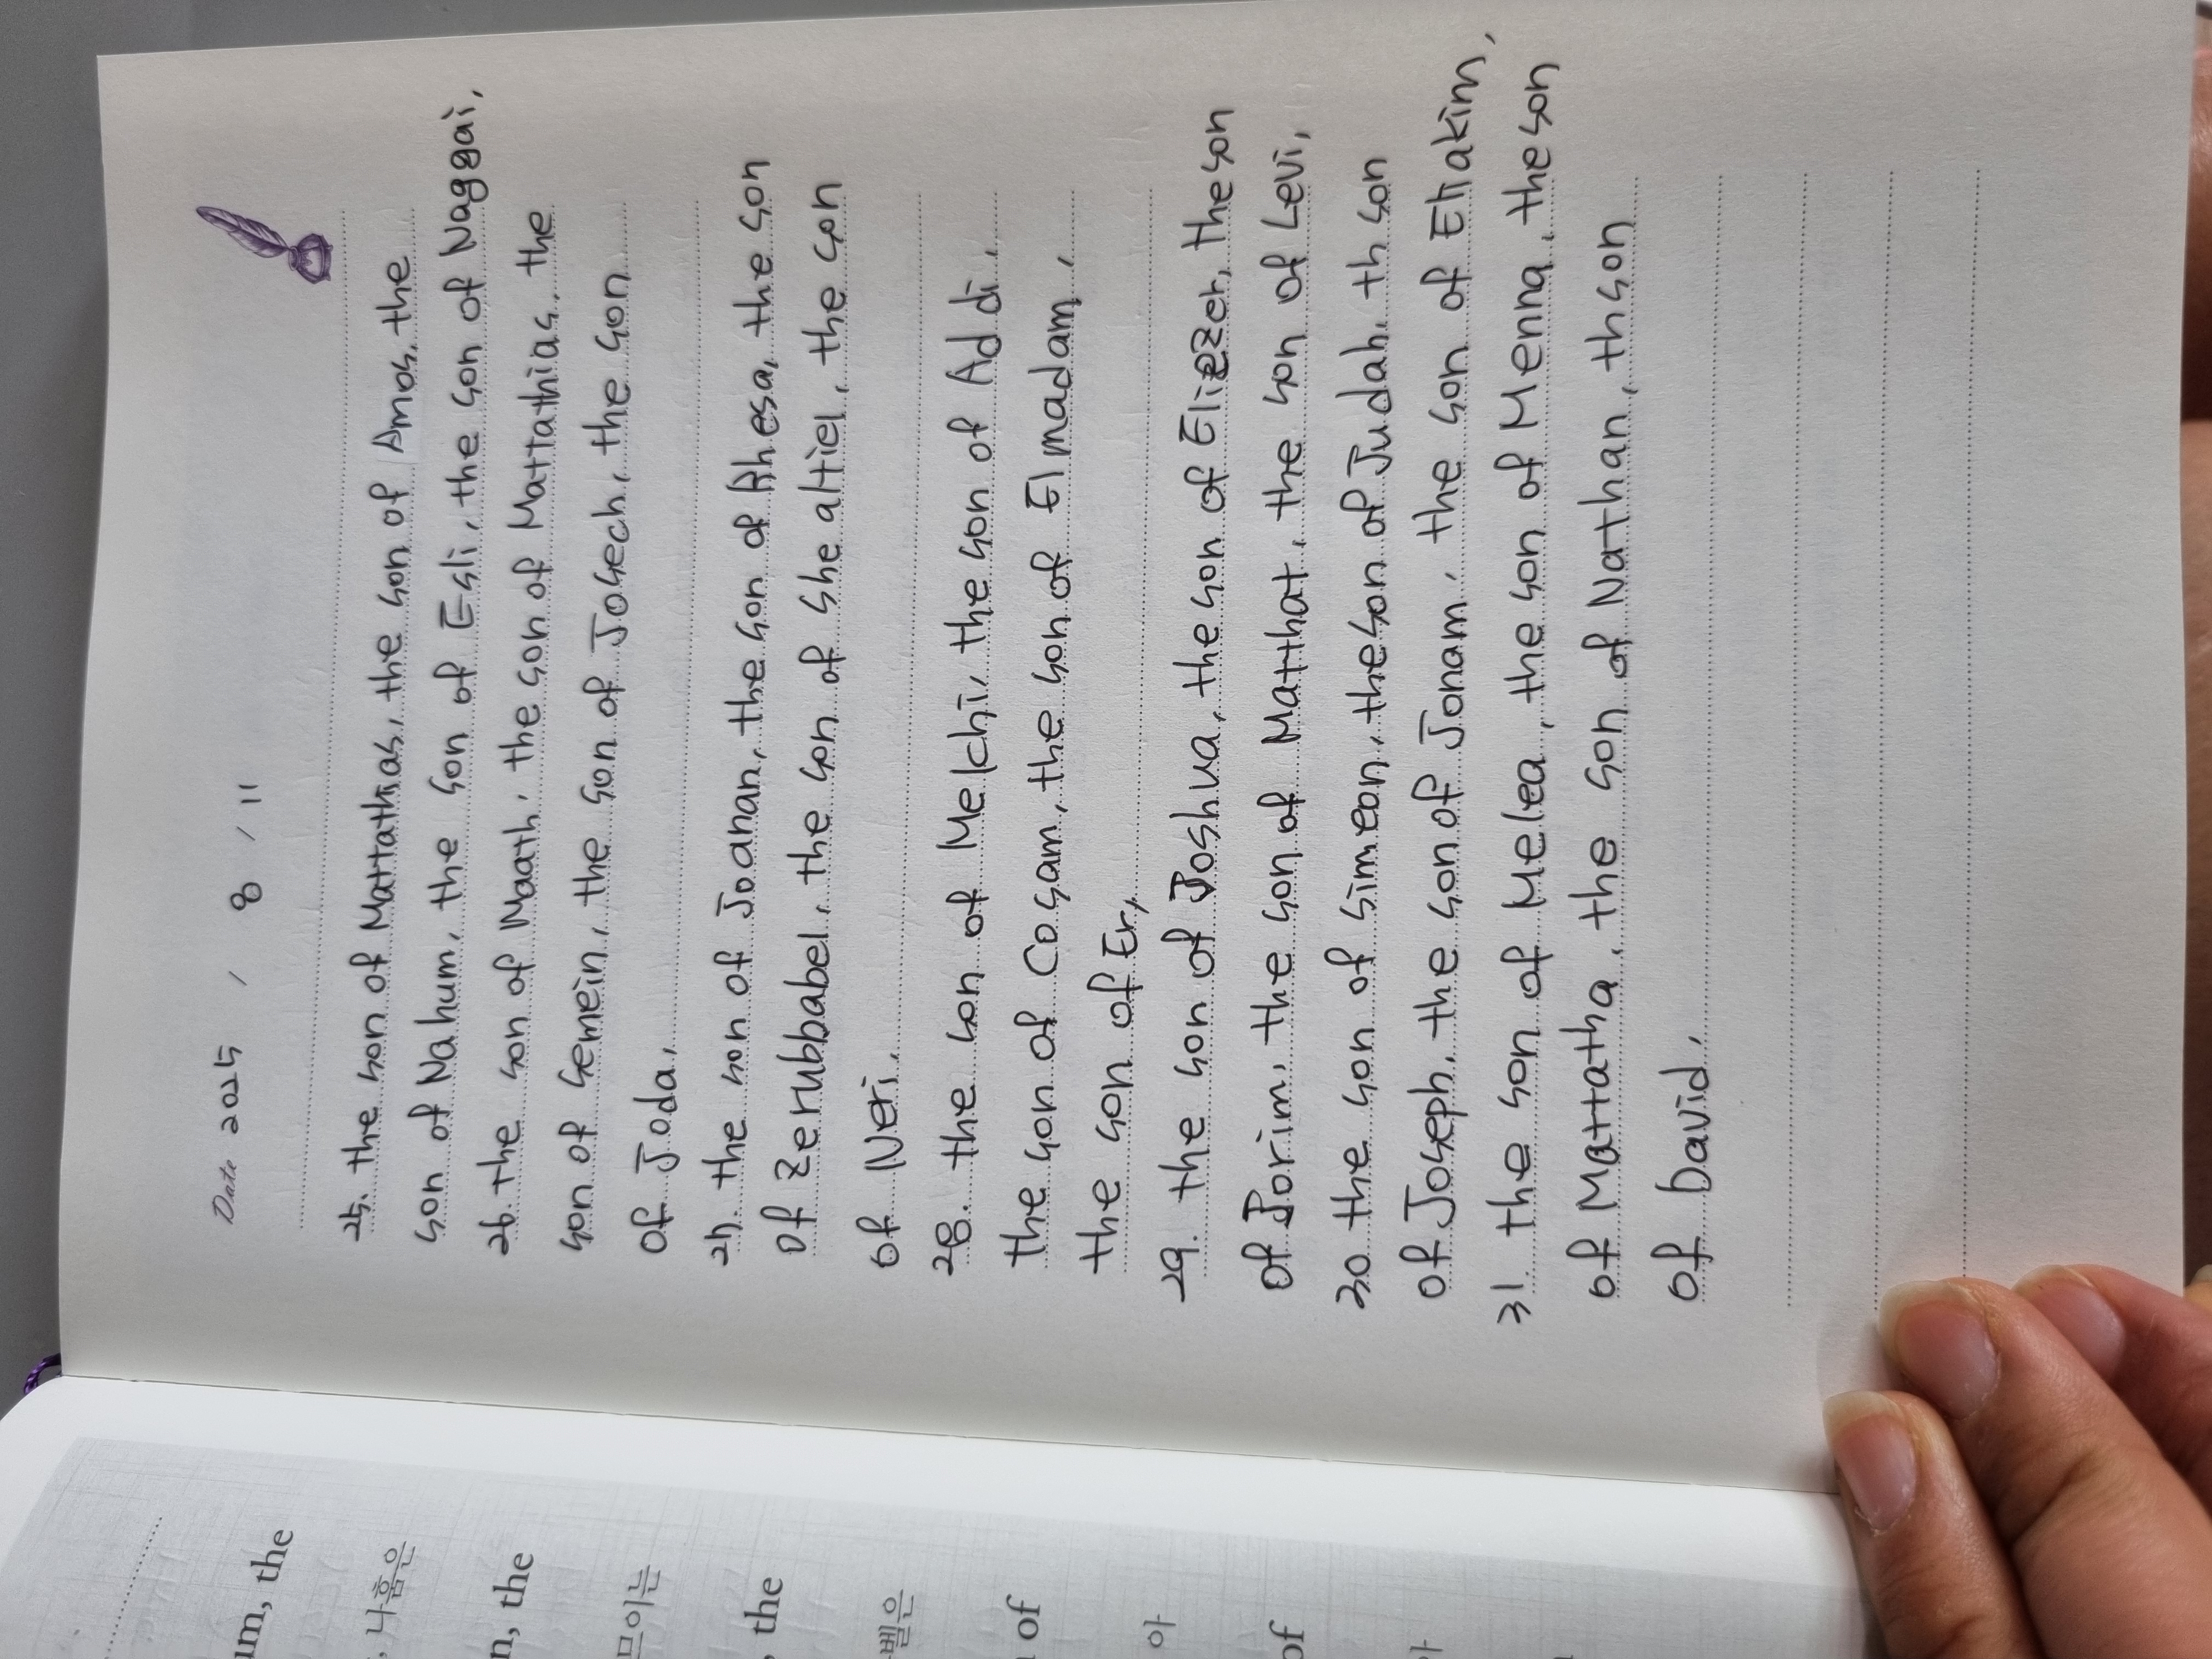 Date 2025 / 8 / 11
25. the son of Mattathias, the son of Amos, the
son of Nahum, the son of Esli, the son of Naggai,
26. the son of Maath, the son of Mattathias, the
son of Semein, the son of Josech, the son
of Joda,
27. the son of Joanan, the son of Rhesa, the son
of Zerubbabel, the son of Shealtiel, the son
of Neri,
28. the son of Melchi, the son of Addi,
the son of Cosam, the son of Elmadam,
the son of Er,
29. the son of Joshua, the son of Eliezer, the son
of Jorim, the son of Matthat, the son of Levi,
30 the son of Simeon, the son of Judah, th son
of Joseph, the son of Jonam, the son of Eliakim,
31. the son of Melea, the son of Menna, the son
of Mattatha, the son of Nathan, th son
of David,
um, the
, 나훔은
n, the
므이는
, the
벨은
of
아
of